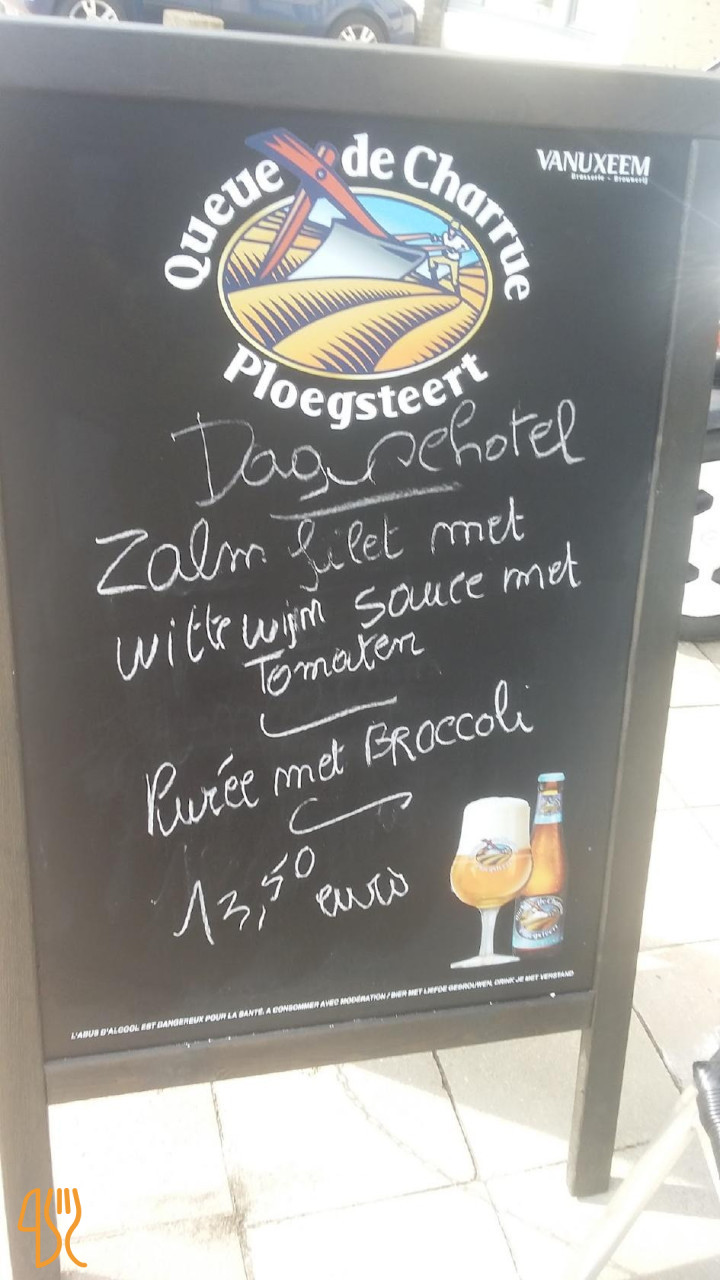 Queue de Charrue
VANUXEEM
Brasserie - Brouwerij
Ploegsteert
Dagschotel
Zalm filet met
witte wijn sauce met
Tomaten
Purée met BROCCOLi
13,50 euro
Ploegsteert
Queue de Charrue
Ploegsteert
L'ABUS D'ALCOOL EST DANGEREUX POUR LA SANTÉ. A CONSOMMER AVEC MODÉRATION / BIER MET LIEFDE GEBROUWEN, DRINK JE MET VERSTAND.